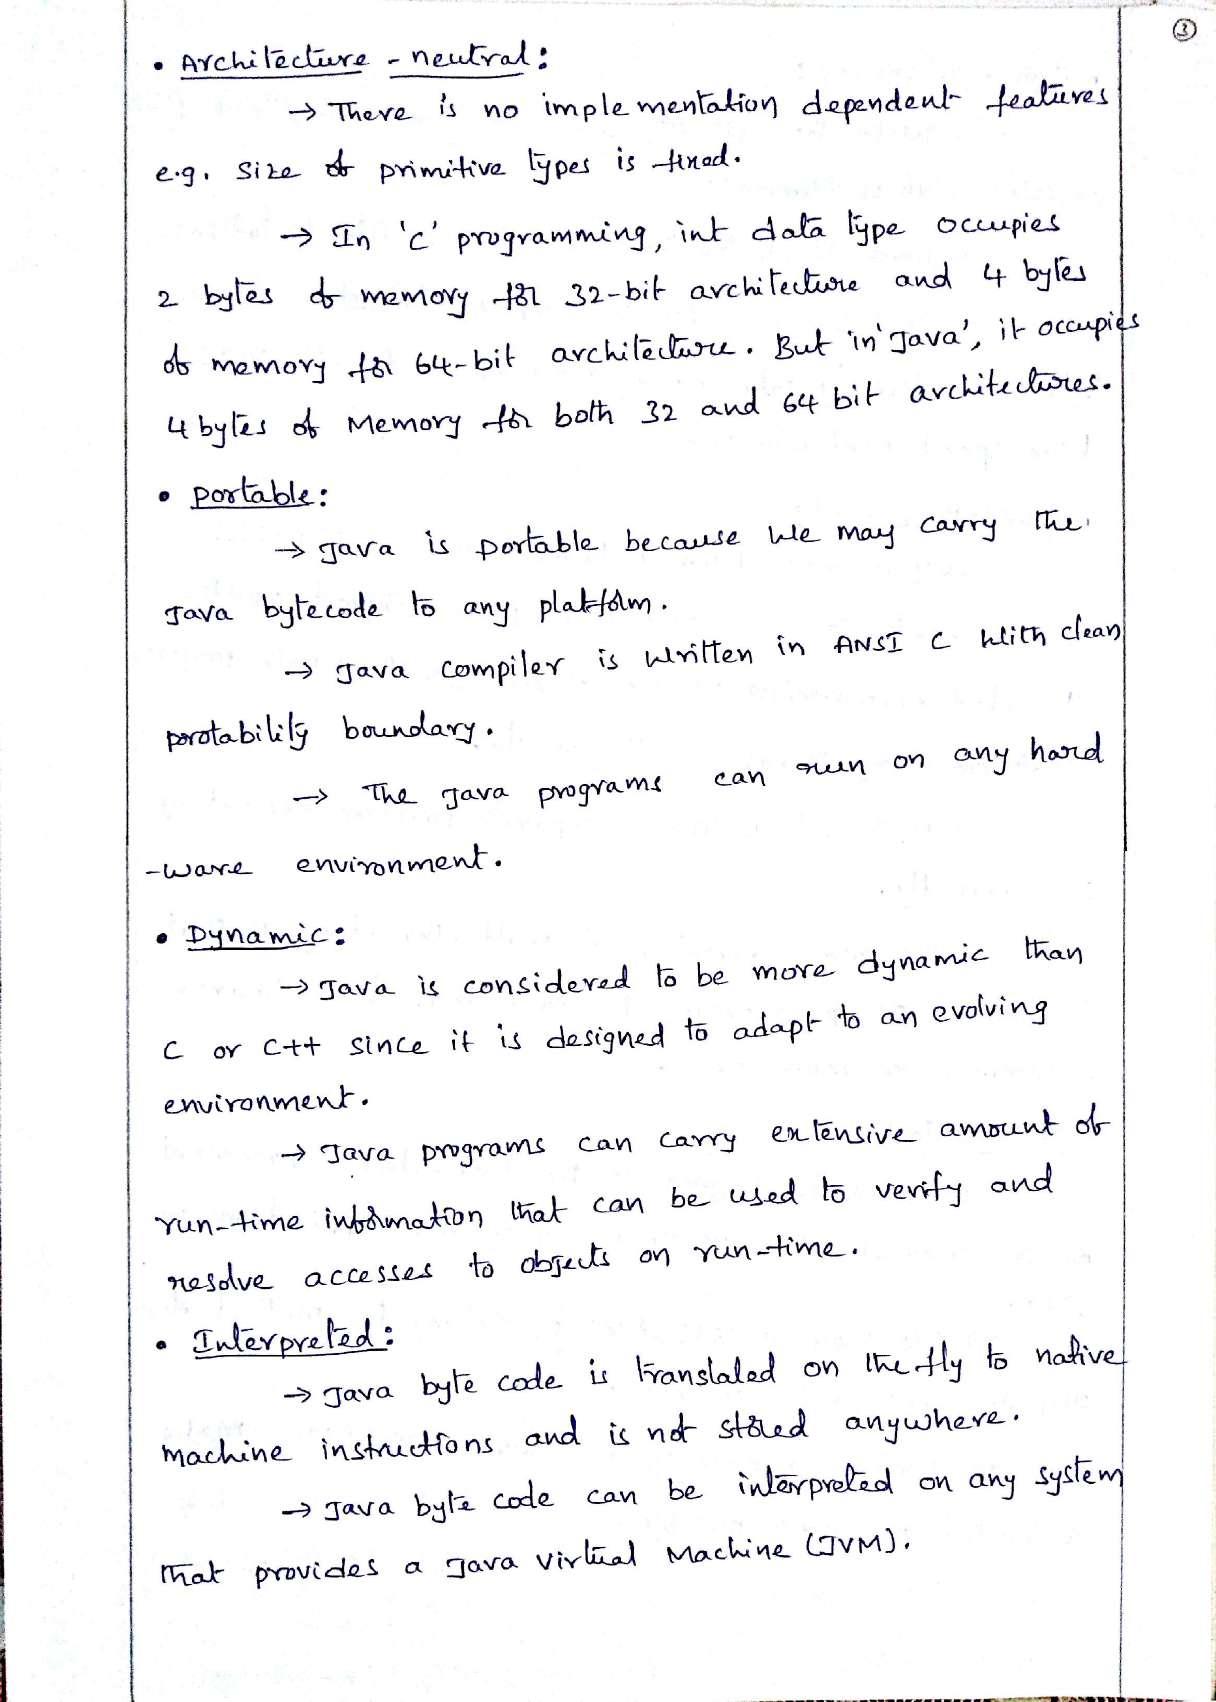 3
• Architecture - neutral:
→ There is no implementation dependent features
e.g. Size of primitive types is fixed.
→ In 'C' programming, int data type occupies
2 bytes of memory for 32-bit architecture and 4 bytes
of memory for 64-bit architecture. But in 'Java', it occupies
4 bytes of Memory for both 32 and 64 bit architectures.
• Portable:
→ Java is portable because We may carry the
Java bytecode to any platform.
→ Java compiler is written in ANSI C With clean
porotability boundary.
→ The Java programs can run on any hard
-ware environment.
• Dynamic:
→ Java is considered to be more dynamic than
C or C++ since it is designed to adapt to an evolving
environment.
→ Java programs can carry extensive amount of
run-time information that can be used to verify and
resolve accesses to objects on run-time.
• Interpreted:
→ Java byte code is translated on the fly to native
machine instructions and is not stored anywhere.
→ Java byte code can be interpreted on any system
that provides a Java Virtual Machine (JVM).